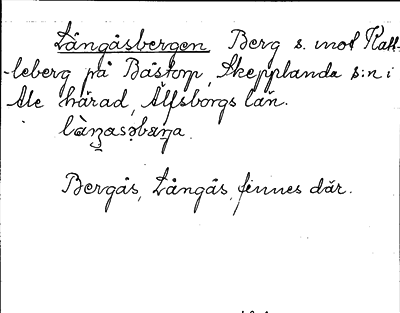 Långåsbergen Berg s. mot Katt-
-leberg på Båstorp, Skepplanda s:n i
Ale härad, Älfsborgs län.
làŋasǝbæŋa.
Bergås, Långås, finnes där.